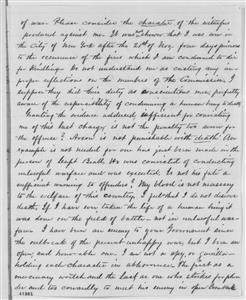 of war. Please consider the character of the witnesses
produced against me. It was shown that I was seen in
the City of New York after the 25th of Nov. four days prior
to the occurrence of the fires which I am condemned to die
for Kindling. Do not understand me as casting any im-
proper reflections on the members of the Commission. I
suppose they did their duty as conscientious men properly
aware of the responsibility of condemning a human being to death.
Granting the evidence adduced sufficient for convicting
me of this last charge is not the penalty too severe for
the offence? Arson is not punishable with death! An
example is not needed for one has just been made in the
person of Capt Beall. He was convicted of conducting
unlawful warfare and was executed. Is not his fate a
sufficient warning to offenders? My blood is not necessary
to the welfare of this country. And that I do not deserve
death. If I have ever taken the life of a human being it
was done on the field of battle - not in unlawful war-
fare. I have been an enemy to your Government since
the outbreak of the present unhappy war but I have been an
open and honorable one. I am not a spy, or guerilla -
holding each character in abhorrence. The first as a
mercenary wretch and the last as one who strikes for plun-
der and too cowardly to meet his enemy in open combat.
41361